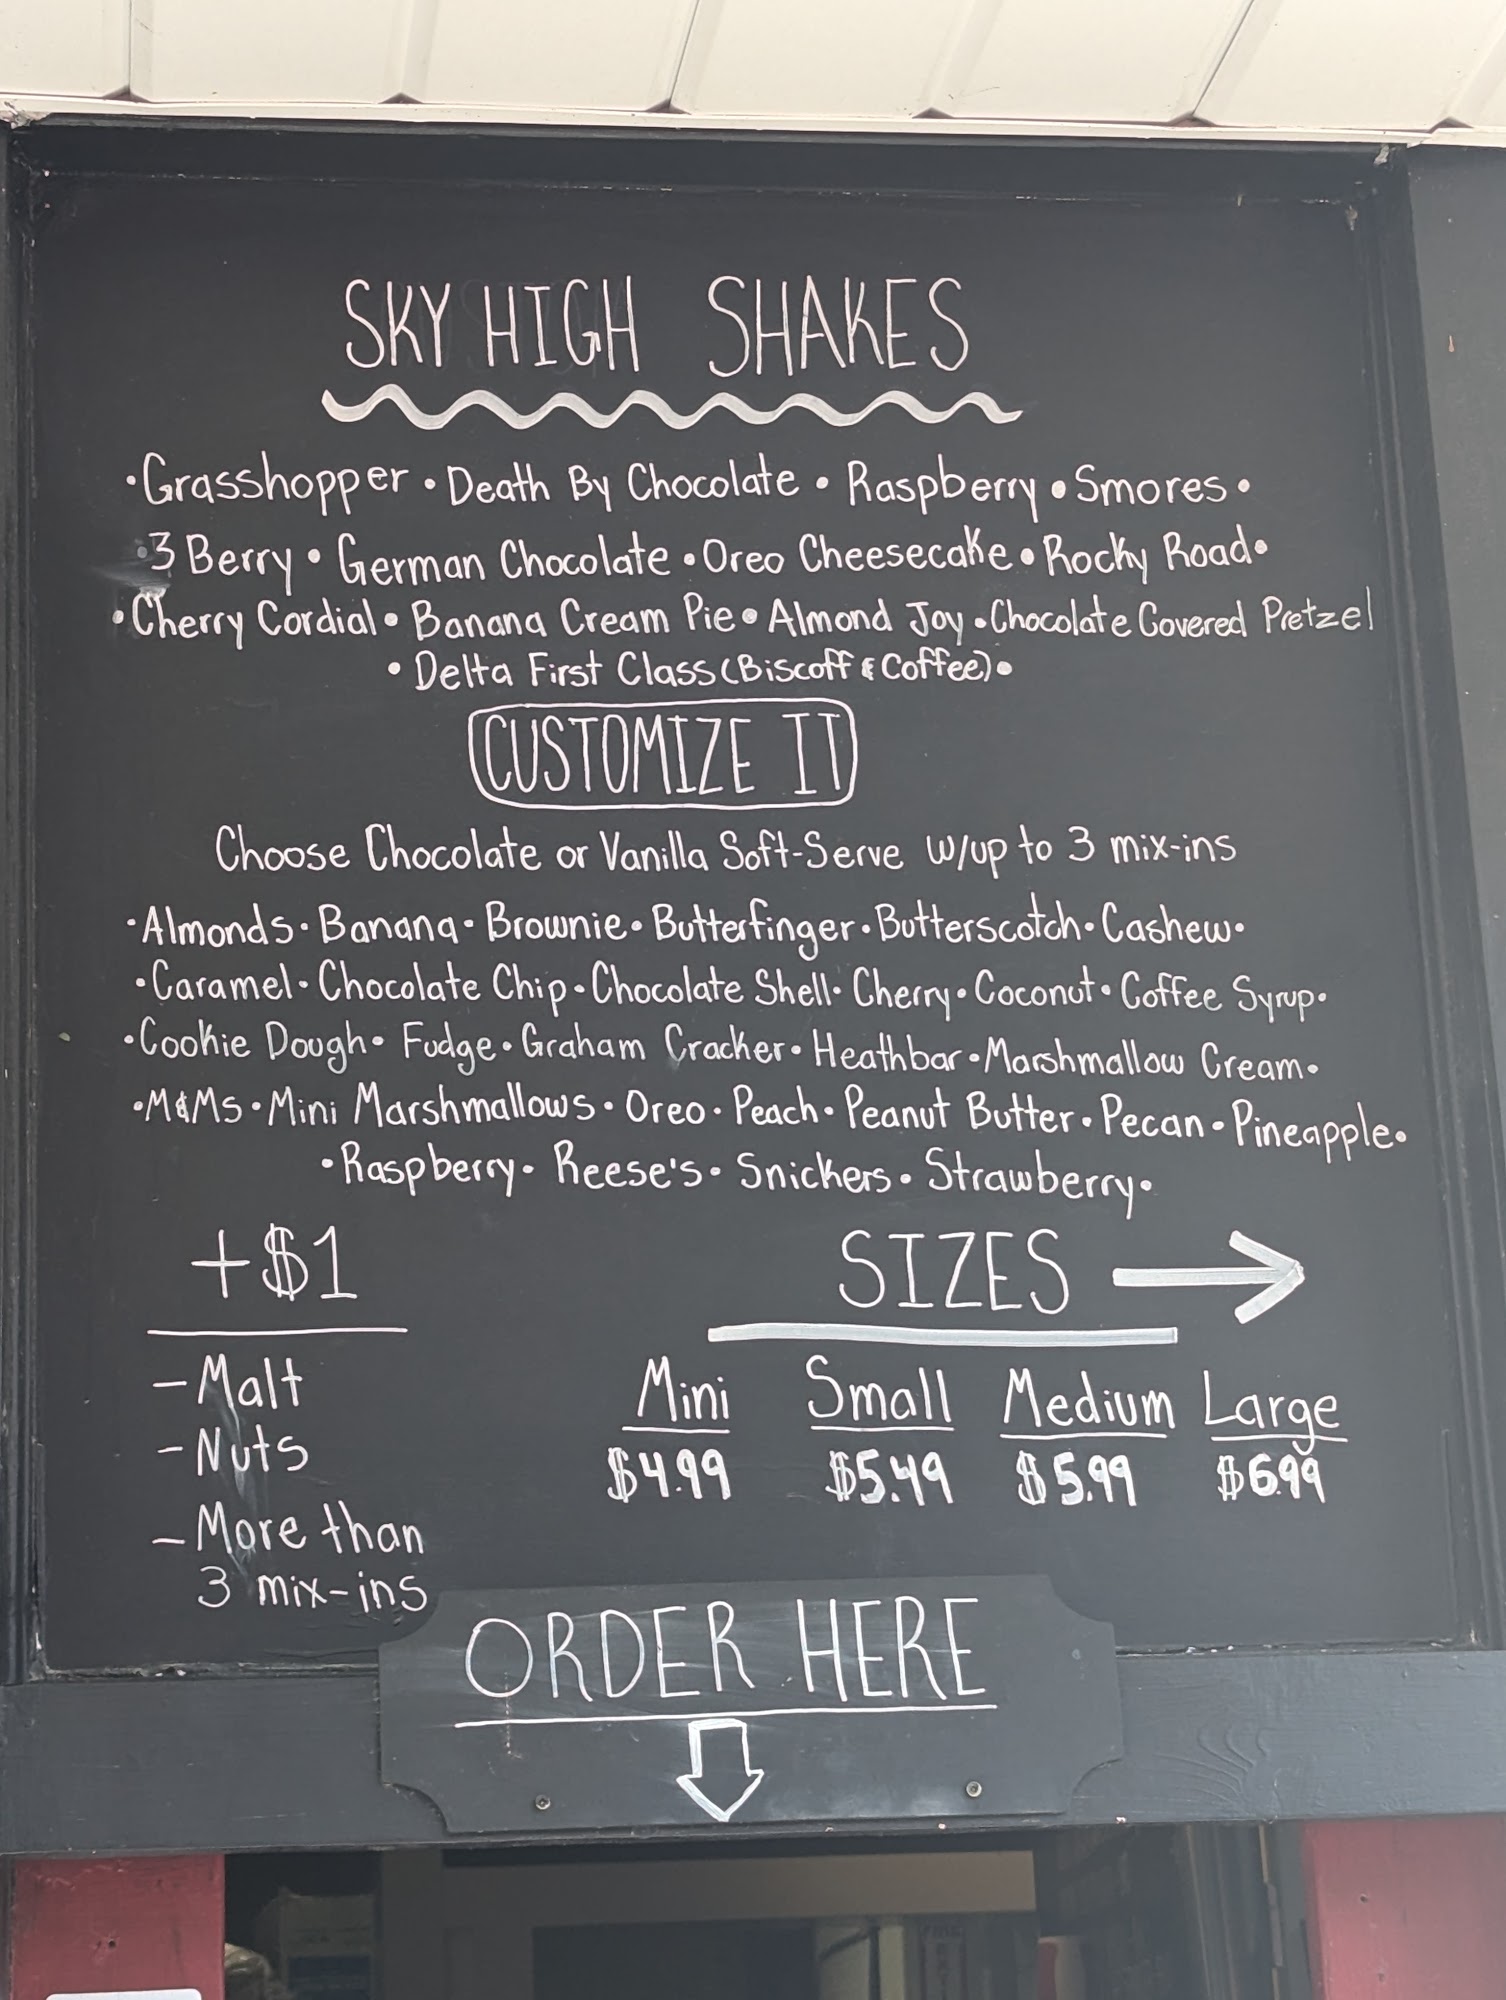 SKY HIGH SHAKES
•Grasshopper • Death By Chocolate • Raspberry • Smores •
•3 Berry • German Chocolate • Oreo Cheesecake • Rocky Road•
•Cherry Cordial • Banana Cream Pie • Almond Joy •Chocolate Covered Pretzel
• Delta First Class (Biscoff & Coffee) •
CUSTOMIZE IT
Choose Chocolate or Vanilla Soft-Serve w/up to 3 mix-ins
•Almonds • Banana • Brownie • Butterfinger • Butterscotch • Cashew •
•Caramel • Chocolate Chip • Chocolate Shell • Cherry • Coconut • Coffee Syrup •
•Cookie Dough • Fudge • Graham Cracker • Heathbar • Marshmallow Cream •
•M&Ms • Mini Marshmallows • Oreo • Peach • Peanut Butter • Pecan • Pineapple •
•Raspberry • Reese's • Snickers • Strawberry •
+$1
- Malt
- Nuts
- More than
3 mix-ins
SIZES →
Mini Small Medium Large
$4.99 $5.49 $5.99 $6.99
ORDER HERE